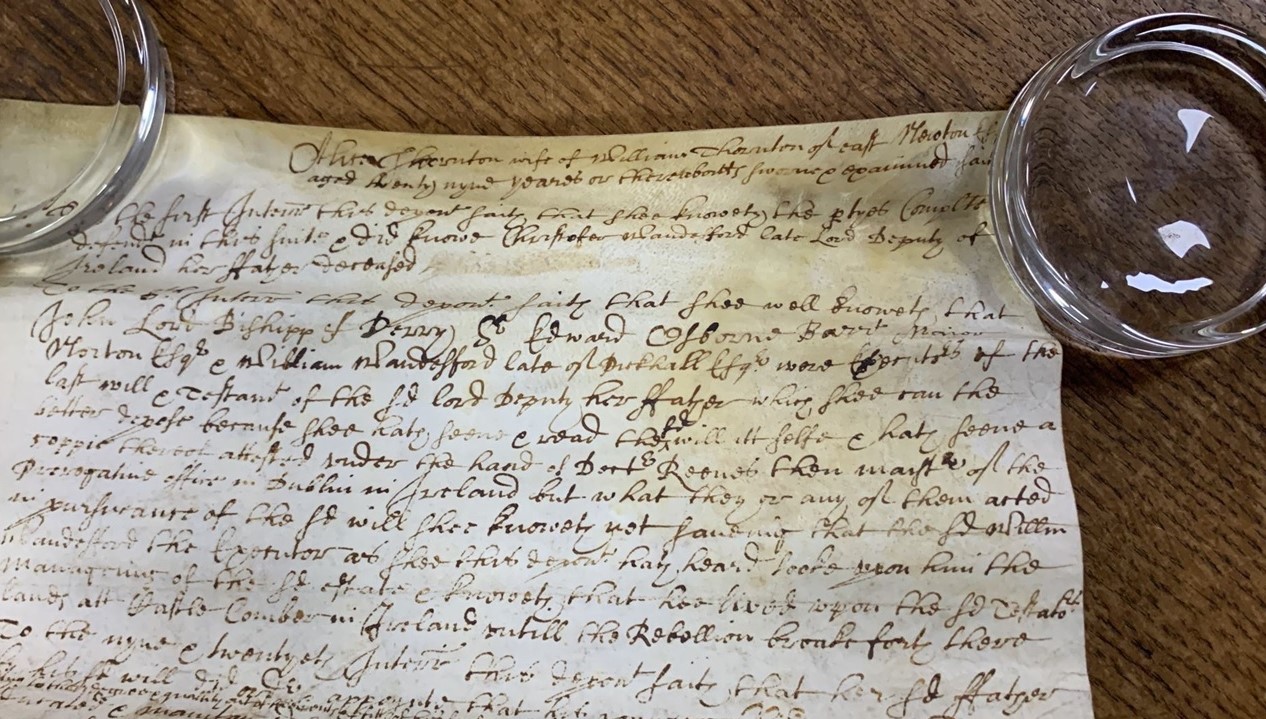 Alice Thornton wife of William Thornton of east Newton
aged twenty nyne yeares or thereabouts sworne & examined
the first Interr this depont saith that shee knoweth the ptyes Complts
defendts in this suite & did knowe Christofer Wandesford late Lord Deputy of
Ireland her ffather deceased
To the Interr this depont saith that shee well knoweth that
John Lord Bishipp of Derry Sr Edward Osborne Barrt
Norton Esqr & William Wandesford late of Pickhill Esqr were Executors of the
last will & Testamt of the sd lord Deputy her ffather which shee can the
better depose because shee hath seene & read the sd will itt selfe & hath seene a
coppie thereof attested under the hand of Doctr Reeves then maistr of the
Prerogative office in Dublin in Ireland but what they or any of them acted
in pursuance of the sd will shee knoweth not saveing that the sd Willm
Wandesford the Executor as shee this depont hath heard tooke upon him the
manageing of the sd estate & knoweth that hee lived upon the sd Testators
lands att Castle Comber in Ireland untill the Rebellion broake forth there
To the nyne & twentyeth Interr this depont saith that her sd ffather
last will did appointe that his